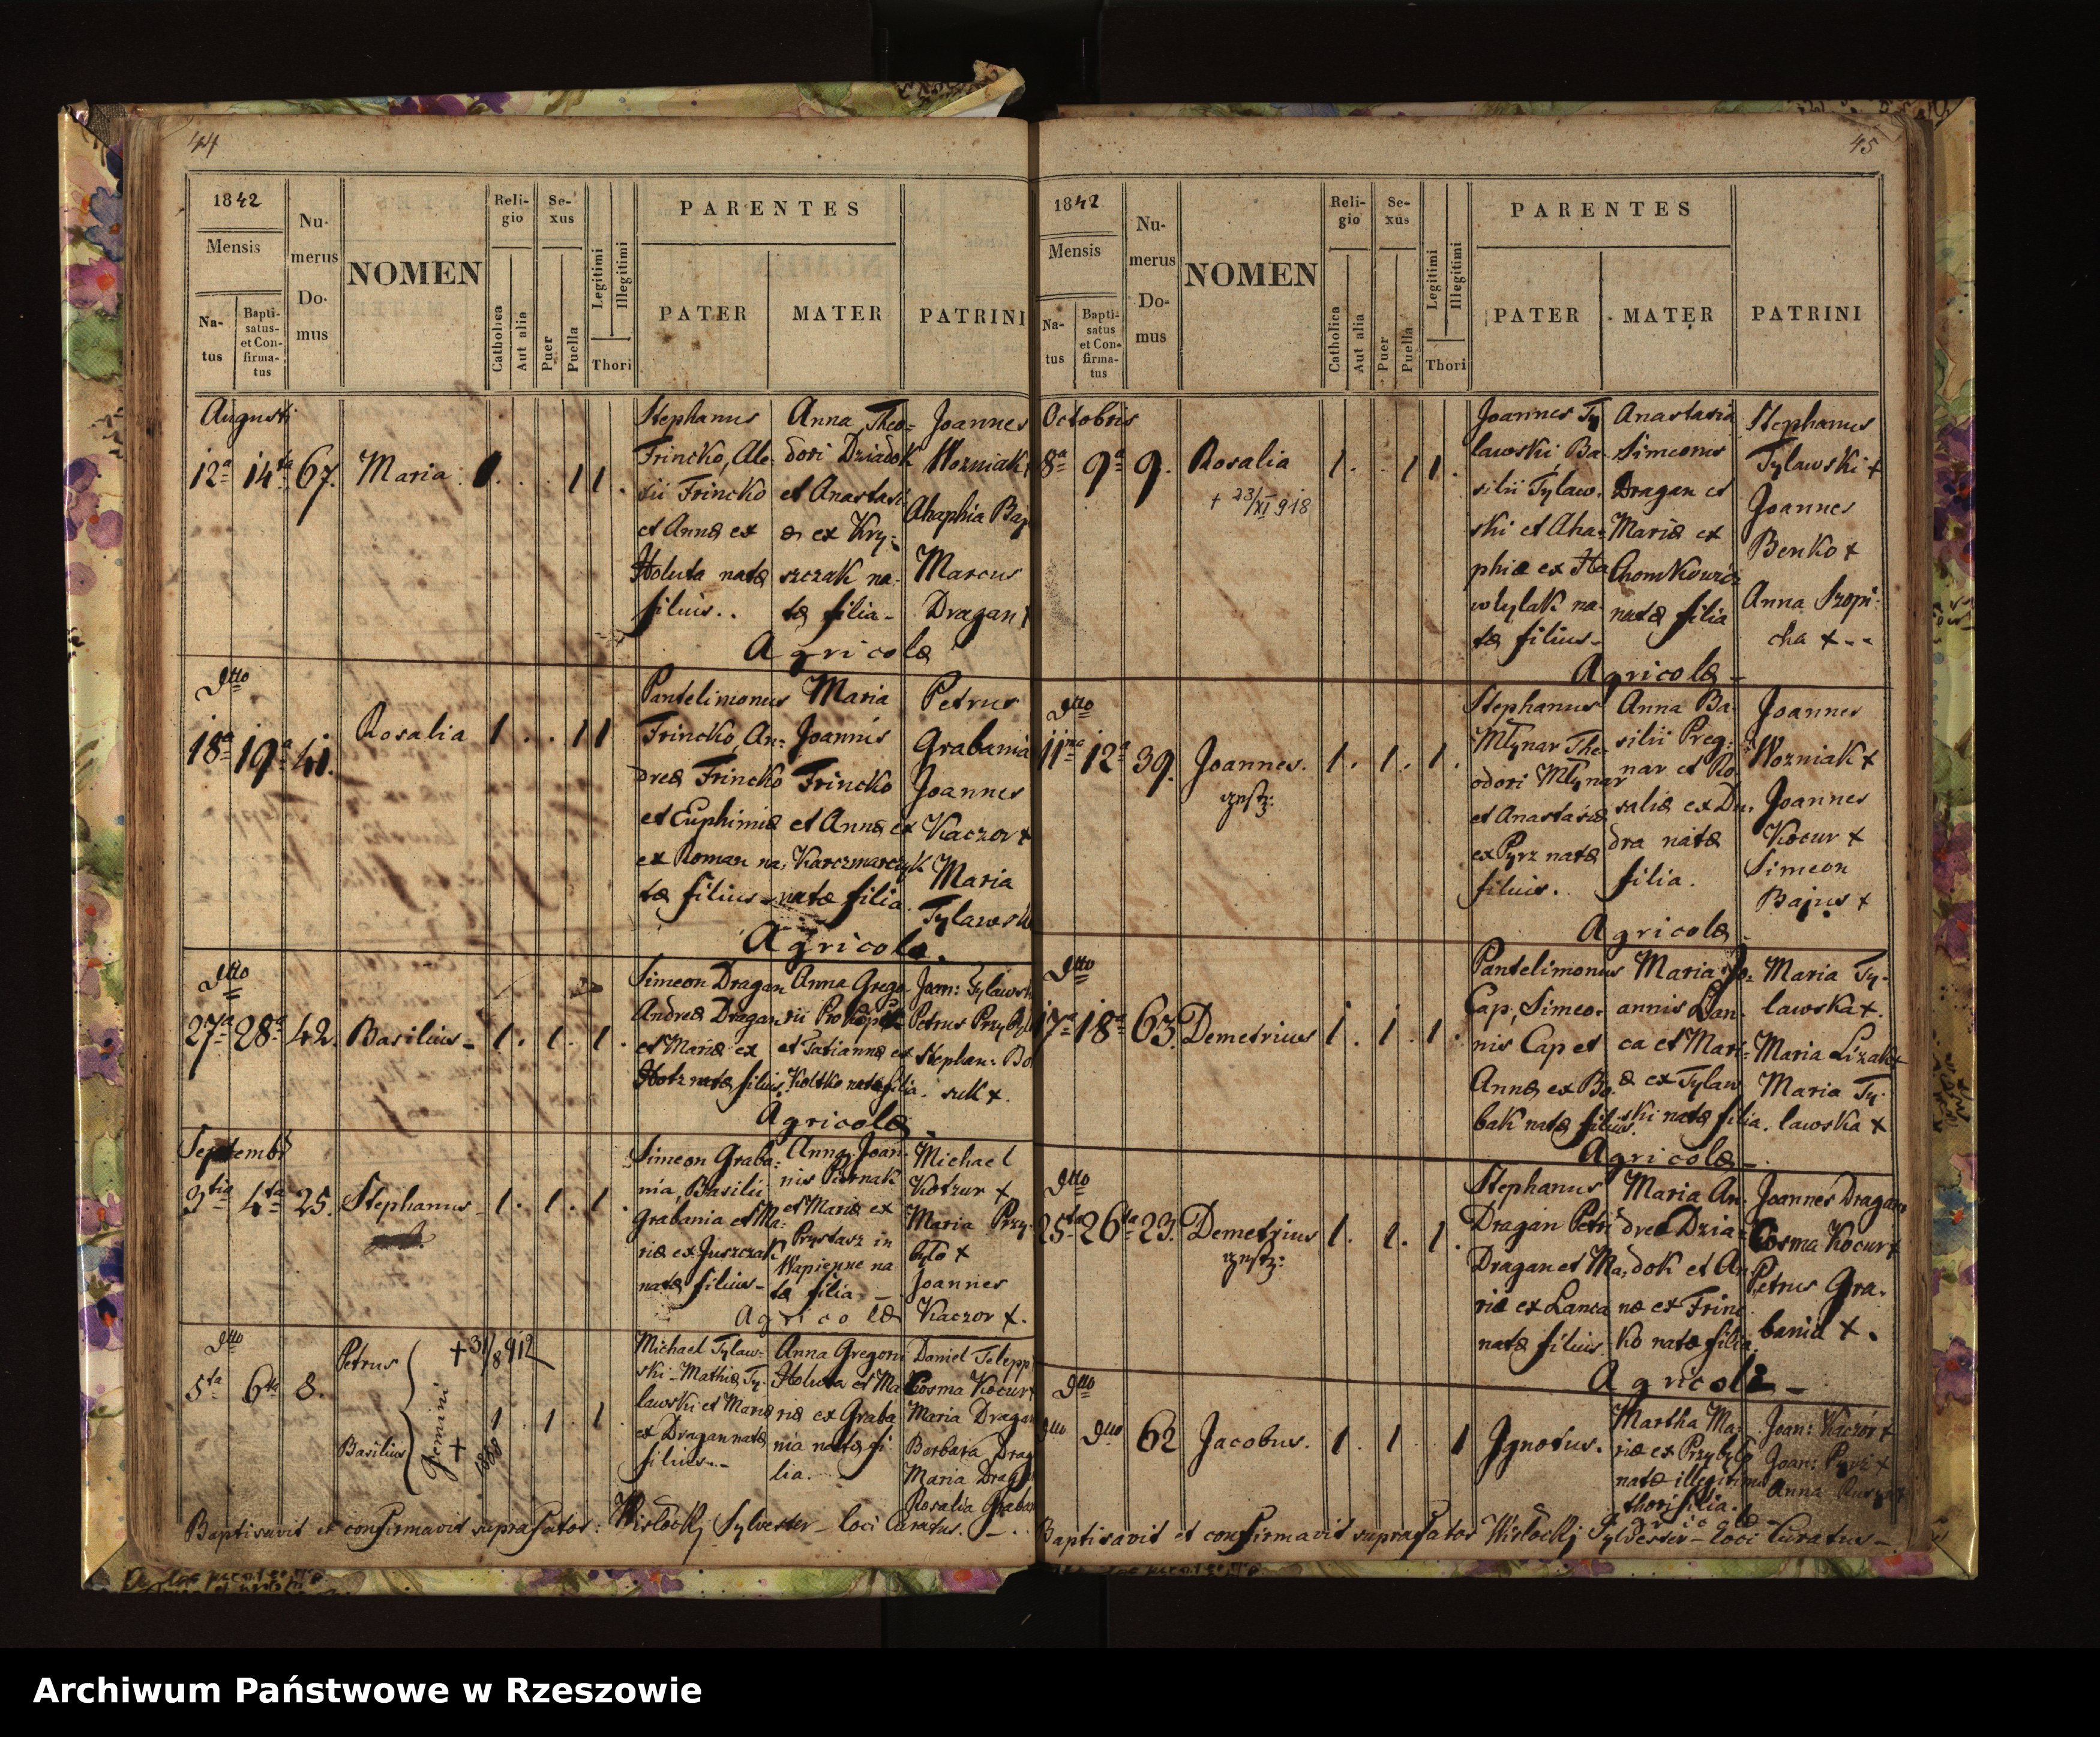 44
1842
Mensis
Na-
tus
Bapti-
satus-
et Con-
firma-
tus
Nu-
merus
Do-
mus
NOMEN
Reli-
gio
Catholica
Aut alia
Se-
xus
Puer
Puella
Legitimi
Illegitimi
Thori
PARENTES
PATER
MATER
PATRINI
Augusti
12a 14ta 67. Maria 1 . . 1 1 .
Stephanus
Frincko, Ale-
xii Frincko
et Annæ ex
Holuta natæ
filius..
Anna, Theo=
dori Dziadok
et Anastasi
æ ex Kry-
szczak na-
tæ filia-
Joannes
Wozniak
Ahaphia Baj
Marcus
Dragan
Agricolæ
dtto
18a 19a 41. Rosalia 1 . . 1 1
Pantelimonus
Frincko, An=
dreæ Frincko
et Euphimiæ
ex Roman na-
tæ filius-
Maria
Joannis
Frincko
et Annæ ex
Karczmarczyk
natæ filia.
Petrus
Grabania
Joannes
Kaczor +
Maria
Tylawsk
Agricolæ.
dtto
27a 28a 42. Basilius- 1 . 1 . 1 .
Simeon Dragan
Andreæ Dragan
et Mariæ ex
Hotz natæ filius.
Anna Grego
rii Prokopik
et Tatiannæ ex
Koltko natæ filia.
Joan: Tylawsk
Petrus Przybyl
Stephan: Bo
suk +.
Agricolæ
Septembr
3tia 4ta 25. Stephanus- 1 . 1 . 1 .
Simeon Graba=
nia, Basilii
Grabania et Ma=
riæ ex Juszczak
natæ filius-
Anna, Joan
nis
et Mariæ ex
Prystasz in
Wapienne na
tæ filia. -
Michael
Kotzur +
Maria Przy-
było +
Joannes
Kaczor +.
Agricolæ
dtto
5ta 6ta 8.
Petrus
Basilius
Gemini
+ 31/8 912
+ 1880
1 . 1 . 1 .
Michael Tylaw-
ski-Mathiæ, Ty-
lawski et Mariæ
ex Dragan natæ
filius.-
Anna Gregorii
Holuta et Ma
riæ ex Graba
nia natæ fi
lia.
Daniel Telepp
Cosma Kocur
Maria Dragan
Barbara Drag
Maria Drag
Rosalia Graban
Baptisavit et confirmavit suprafatos: Wisłocky Sylvester - loci Curatus. - .
45
1842
Mensis
Na-
tus
Bapti-
satus
et Con-
firma-
tus
Nu-
merus
Do-
mus
NOMEN
Reli-
gio
Catholica
Aut alia
Se-
xus
Puer
Puella
Legitimi
Illegitimi
Thori
PARENTES
PATER
MATER
PATRINI
Octobris
8a 9a 9. Rosalia 1 . . 1 1 .
+ 23/XI 918
Joannes Ty
lawski, Ba-
silii Tylaw-
ski et Aha=
phiæ ex Ha
wrylak na-
tæ filius-
Anastasia
Simeonis
Dragan et
Mariæ ex
Chomkowicz
natæ filia
Stephanus
Tylawski +
Joannes
Benko +
Anna Szopi-
cha +--
Agricolæ-
dtto
11ma 12a 39. Joannes. 1 . 1 . 1 .
Stephanus
Młynar The-
odori Młynar
et Anastasiæ
ex Pyrz natæ
filius.
Anna Ba-
silii Preg-
nar et Ro-
saliæ ex Du-
dra natæ
filia.
Joannes
Wozniak +
Joannes
Kocur +
Simeon
Bajus +
Agricolæ-
dtto
17a 18a 63. Demetrius 1 . 1 . 1 .
Pantelimonus
Cap, Simeo-
nis Cap et
Annæ ex Bo-
bak natæ filius.
Maria Jo-
annis Lan-
ca et Mari=
æ ex Tylaw
ski natæ filia.
Maria Ty-
lawska +.
Maria Lizak +
Maria Ty-
lawska +
Agricolæ-
dtto
25ta 26ta 23. Demetrius 1 . 1 . 1 .
Stephanus
Dragan Petri
Dragan et Ma-
riæ ex Lanca
natæ filius.
Maria An-
dreæ Dzia-
dok et An
næ ex Frinc
ko natæ filia.
Joannes Dragan
Cosma Kocur +
Petrus Gra-
bania +.
Agricolæ-
dtto
dtto dtto 62 Jacobus. 1 . 1 . 1
Ignotus.
Martha Ma-
riæ ex Przybyło
natæ illegitimi
thori filia.
Joan: Kaczor +
Joan: Pyrz +
Anna
Baptisavit et confirmavit suprafatos Wisłocky Sylvester - loci Curatus -.
Archiwum Państwowe w Rzeszowie